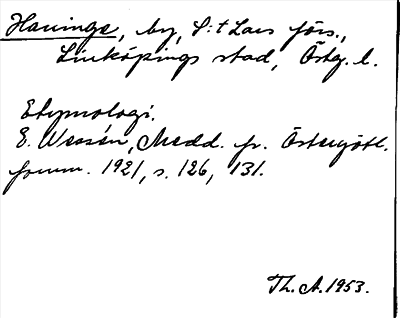 Hauinge, by, S:t Lars förs.,
Linköpings stad, Östg. l.
Etymologi.
E. Wessén, Medd. fr. Östergötl.
fornm. 1921, s. 126, 131.
Th. A. 1953.